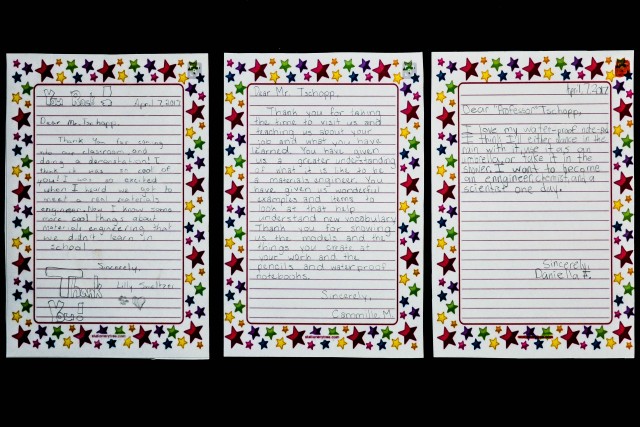 You Rock!
April 7, 2017
Dear Mr. Tschopp,
Thank You for coming
into our classroom and
doing a demonstration! I
think it was so cool of
you! I was so excited
when I heard we got to
meet a real materials
engineer. Now I know some
more cool things about
materials engineering that
we didn't learn in
school.
Sincerely,
Lilly
Thank
You!
Dear Mr. Tschopp,
Thank you for taking
the time to visit us and
teaching us about your
job and what you have
learned. You have given
us a greater understanding
of what it is like to be
a materials engineer. You
have given us wonderful
examples and items to
look at that help
understand new vocabulary.
Thank you for showing
us the models and the
things you create at
your work and the
pencils and waterproof
notebooks.
Sincerely,
Cammilla M.
April, 7, 2017
Dear "Professor" Tschopp,
I love my water-proof note-pad
I think I'll either dance in the
rain with it, use it as an
umbrella, or take it in the
shower. I want to become
an engineer, chemist, and a
scientist one day.
Sincerely,
Daniella F.